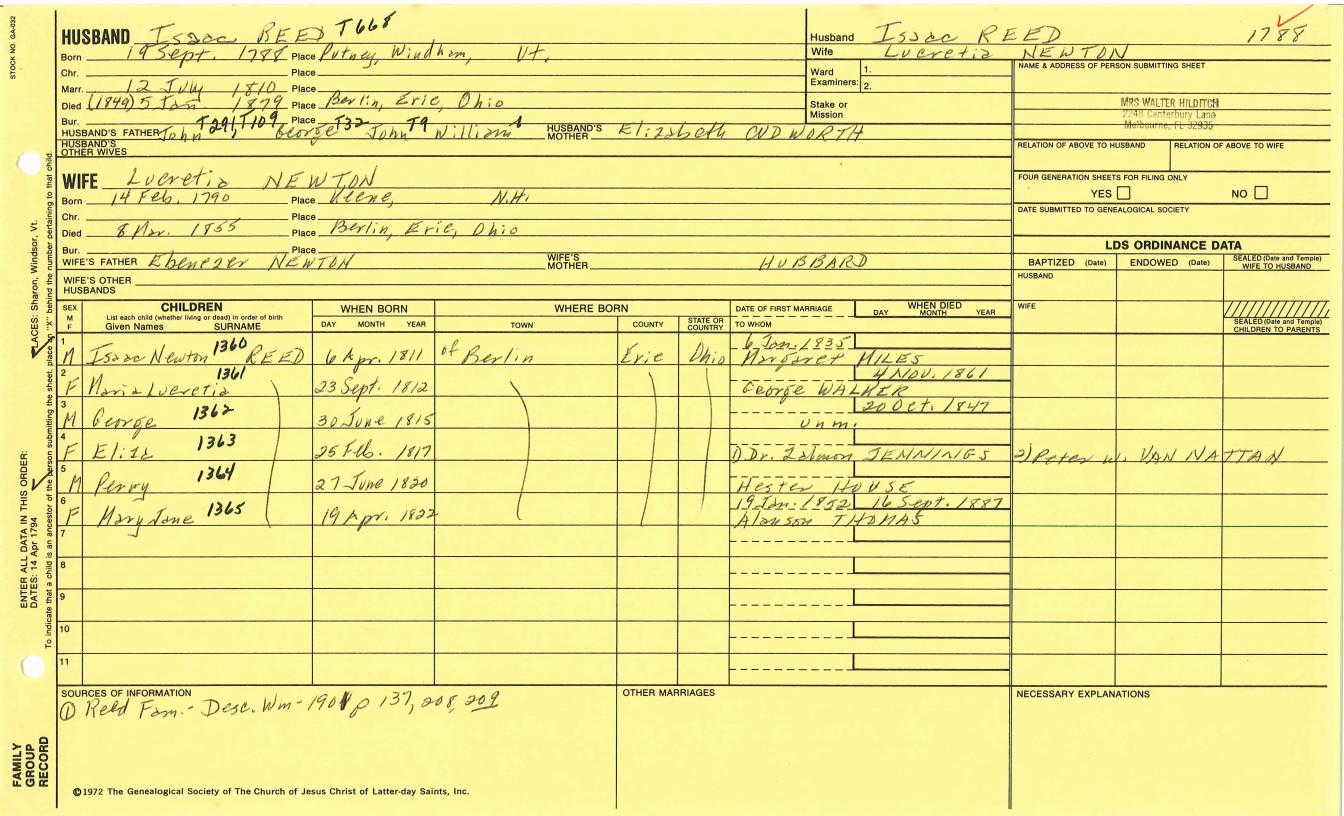 STOCK NO. GA-032
HUSBAND Isaac REED T668
Born 19 Sept. 1788 Place Putney, Windham, Vt.
Chr. Place
Marr. 12 July 1810 Place
Died (1849) 5 Jan 1879 Place Berlin, Erie, Ohio
Bur. Place
HUSBAND'S FATHER John T291, T109 George T32 John T9 William 1 HUSBAND'S MOTHER Elizabeth CUDWORTH
HUSBAND'S OTHER WIVES
Husband Isaac REED 1788
Wife Lucretia NEWTON
Ward Examiners: 1.
2.
Stake or Mission
NAME & ADDRESS OF PERSON SUBMITTING SHEET
MRS WALTER HILDITCH
2248 Canterbury Lane
Melbourne, FL 32935
RELATION OF ABOVE TO HUSBAND RELATION OF ABOVE TO WIFE
FOUR GENERATION SHEETS FOR FILING ONLY
YES NO
DATE SUBMITTED TO GENEALOGICAL SOCIETY
WIFE Lucretia NEWTON
Born 14 Feb. 1790 Place Keene, N.H.
Chr. Place
Died 8 Mar. 1855 Place Berlin, Erie, Ohio
Bur. Place
WIFE'S FATHER Ebenezer NEWTON WIFE'S MOTHER HUBBARD
WIFE'S OTHER HUSBANDS
LDS ORDINANCE DATA
BAPTIZED (Date) ENDOWED (Date) SEALED (Date and Temple) WIFE TO HUSBAND
HUSBAND
WIFE
SEALED (Date and Temple) CHILDREN TO PARENTS
SEX M F CHILDREN List each child (whether living or dead) in order of birth Given Names SURNAME WHEN BORN DAY MONTH YEAR WHERE BORN TOWN COUNTY STATE OR COUNTRY DATE OF FIRST MARRIAGE TO WHOM WHEN DIED DAY MONTH YEAR
1 M Isaac Newton 1360 REED 6 Apr. 1811 of Berlin Erie Ohio 6 Jan. 1835 Margaret MILES
2 F Maria Lucretia 1361 23 Sept. 1812 4 Nov. 1861 George WALKER
3 M George 1362 30 June 1815 20 Oct. 1847 Unm.
4 F Eliza 1363 25 Feb. 1817 1) Dr. Zalmon JENNINGS 2) Peter W. VAN NATTAN
5 M Perry 1364 27 June 1820 Hester HOUSE
6 F Mary Jane 1365 19 Apr. 1822 19 Jan. 1852 16 Sept. 1887 Alanson THOMAS
7
8
9
10
11
SOURCES OF INFORMATION
① Reed Fam.- Desc. Wm- 1901 p 137, 208, 209
OTHER MARRIAGES
NECESSARY EXPLANATIONS
©1972 The Genealogical Society of The Church of Jesus Christ of Latter-day Saints, Inc.
FAMILY GROUP RECORD
ENTER ALL DATA IN THIS ORDER:
DATES: 14 Apr 1794
PLACES: Sharon, Windsor, Vt.
To indicate that a child is an ancestor of the person submitting the sheet, place an "X" behind the number pertaining to that child.